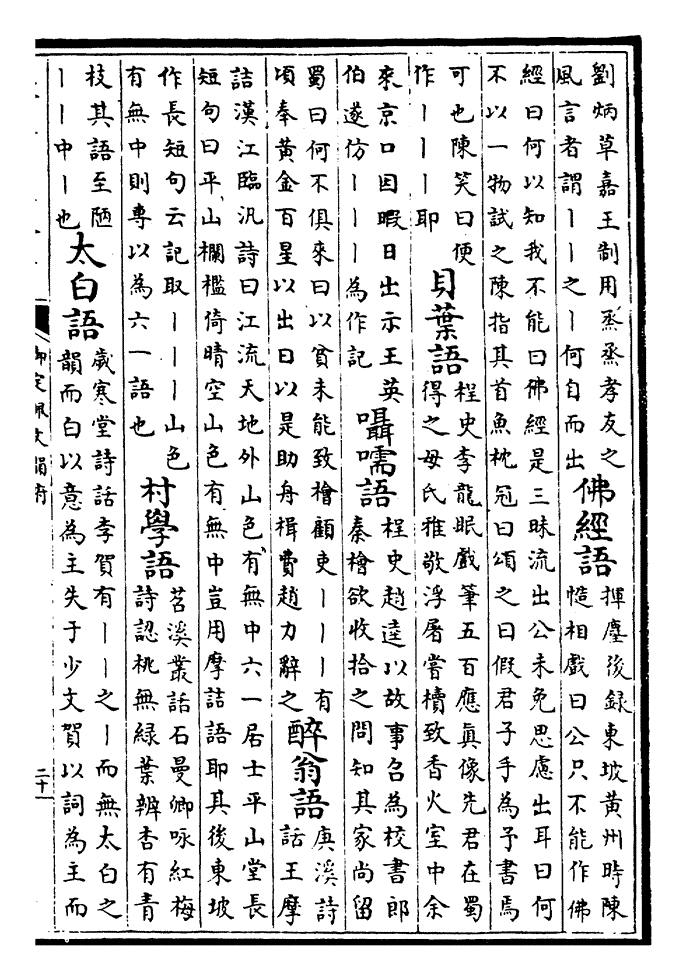 劉炳草嘉王制用烝烝孝友之
風言者謂丨丨之丨何自而出
佛經語
揮塵後録東坡黃州時陳
慥相戲曰公只不能作佛
經曰何以知我不能曰佛經是三昧流出公未免思慮出耳曰何
不以一物試之陳指其首魚枕冠曰頌之曰假君子手為予書焉
可也陳笑曰便
作丨丨丨耶
貝葉語
程史李龍眠戲筆五百應眞像先君在蜀
得之母氏雅敬浮屠嘗櫝致香火室中余
來京口因暇日出示王英
伯遂仿丨丨丨為作記
囁嚅語
程史趙逵以故事召為校書郎
秦檜欲收拾之問知其家尚留
蜀曰何不俱來曰以貧未能致檜顧吏丨丨丨有
頃奉黃金百星以出曰以是助舟楫費趙力辭之
醉翁語
庚溪詩
話王摩
詰漢江臨汎詩曰江流天地外山色有無中六一居士平山堂長
短句曰平山欄檻倚晴空山色有無中豈用摩詰語耶其後東坡
作長短句云記取丨丨丨山色
有無中則專以為六一語也
村學語
苕溪叢話石曼卿咏紅梅
詩認桃無緑葉辨杏有青
枝其語至陋
丨丨中丨也
太白語
歲寒堂詩話李賀有丨丨之丨而無太白之
韻而白以意為主失于少文賀以詞為主而
御定佩文韻府
二十